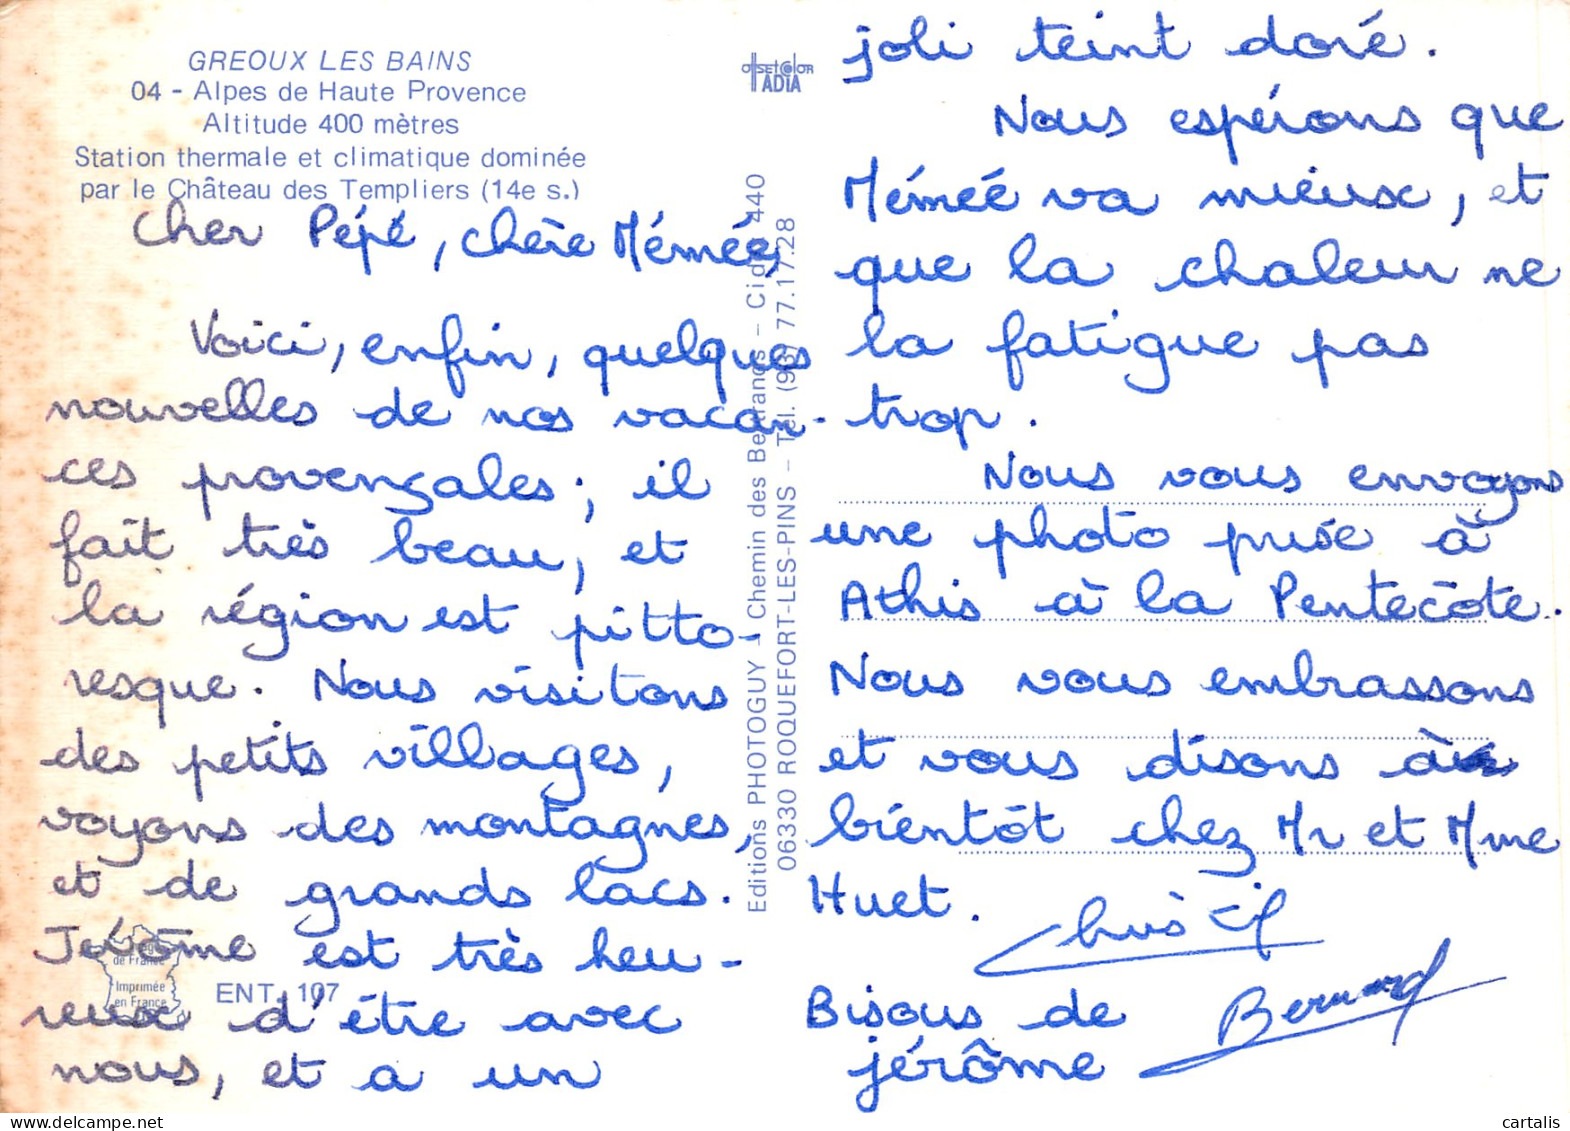 GREOUX LES BAINS
04 - Alpes de Haute Provence
Altitude 400 mètres
Station thermale et climatique dominée
par le Château des Templiers (14e s.)
Cher Pépé, chère Mémée,
Voici, enfin, quelques
nouvelles de nos vacan-
ces provençales ; il
fait très beau, et
la région est pitto-
resque. Nous visitons
des petits villages,
voyons des montagnes,
et de grands lacs.
Jérôme est très heu-
reux d'être avec
nous, et a un
de France
Imprimée
en France
ENT. 107
offsetcolor
ADIA
Editions PHOTOGUY - Chemin des Bertrands - Cidex 440
06330 ROQUEFORT-LES-PINS - Tél. (93) 77.17.28
joli teint doré.
Nous espérons que
Mémeé va mieux, et
que la chaleur ne
la fatigue pas
trop.
Nous vous envoyons
une photo prise à
Athis à la Pentecôte.
Nous vous embrassons
et vous disons à
bientôt chez Mr et Mme
Huet.
Bernard
Bisous de
jérôme
cartalis